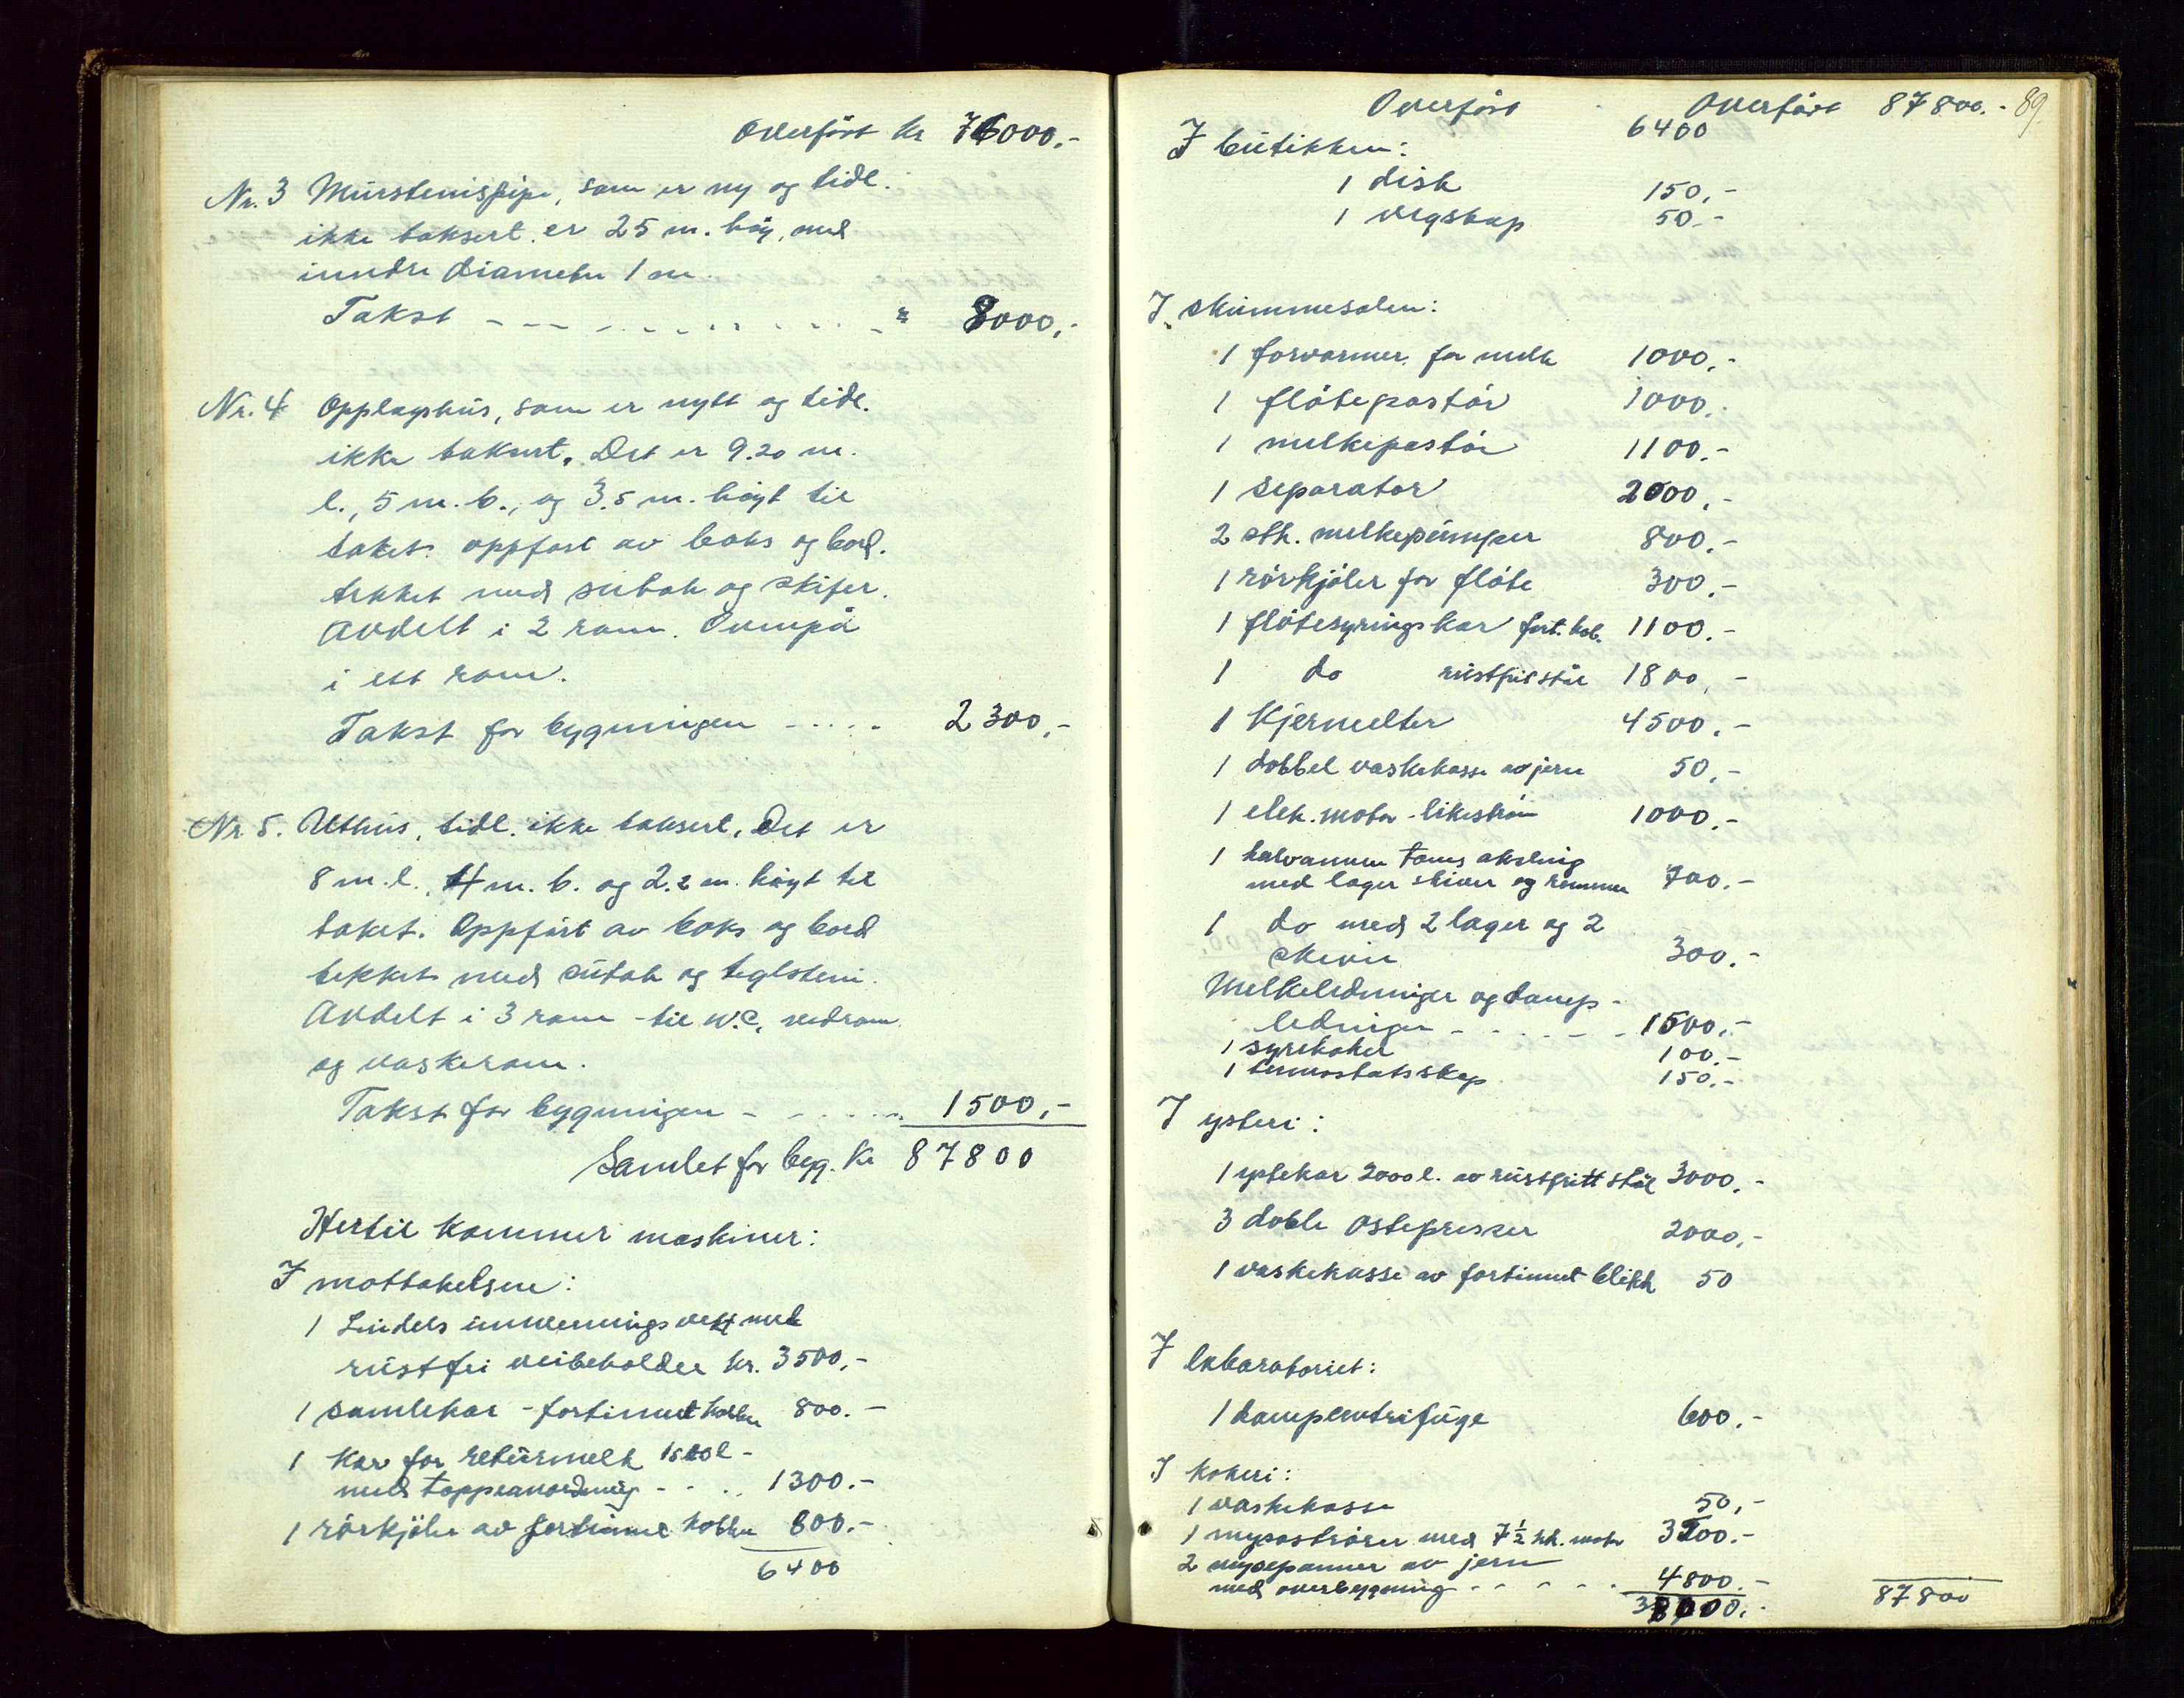 Overført kr 76000,-
Nr. 3 Murstenspipe, som er ny og tidl.
ikke taksert. er 25 m. høg, med
inndre diameter 1 m.
Takst - - - - - - - - - - - - " 8000,-
Nr. 4 Opplagshus, som er nytt og tidl.
ikke taksert. Det er 9.20 m.
l., 5 m. b., og 3.5 m. høyt til
taket. oppført av boks og bord.
tekket med sutak og skifer.
Avdelt i 2 rom.
i ett rom.
Takst for bygningen - - - - - 2300,-
Nr 5. Uthus, tidl. ikke taksert. Det er
8 m. l., 4 m. b. og 2.2 m. høyt til
taket. Oppført av boks og bord
tekket med sutak og teglsten.
Avdelt i 3 rom - til W.C, vedrom
og vaskerom.
Takst for bygningen - - - - - 1500,-
Samlet for byg. kr 87800
Hertil kommer maskiner:
I mottakelsen:
1 Lindels innveiningsvekt med
rustfri veibeholder kr. 3500,-
1 samlekar - fortinnet kobber 800.-
1 Kar for returmelk 1500 l -
med tappeanordning - - .. 1300.-
1 rørkjøler av fortinnet kobber 800.-
6400
89
Overført Overført 87800.-
6400
I butikken:
1 disk 150,-
1 vegskap 50.-
I skummesalen:
1 forvarmer for melk 1000,-
1 fløtepastør 1000,-
1 melkepastør 1100.-
1 separator 2000,-
2 stk. melkepumper 800.-
1 rørkjøler for fløte 300.-
1 fløtesyringskar fort. kob. 1100.-
1 do rustfritt stål 1800,-
1 Kjernelter 4500.-
1 dobbel vaskekasse av jern 50,-
1 elek. motor - likestrøm 1000,-
1 halvannen toms aksling
med lager skiver og remmer 700.-
1 do med 2 lager og 2
skiver 300.-
Melkeledninger og damp-
ledninger - - - - - - 1500,-
1 syrekoker 100.-
1 termostatsskap 150.-
I ysteri:
1 ystekar 2000 l. av rustfritt stål 3000,-
3 doble ostepresser 2000,-
1 vaskekasse av fortinnet blikk 50
I laboratoriet:
1 dampsentrifuge 600,-
I kokeri:
1 vaskekasse 50,-
1 myseostrører med 7½ hk. motor 3200.-
2 mysepanner av jern
med overbygning - - - - - 4800.-
87800